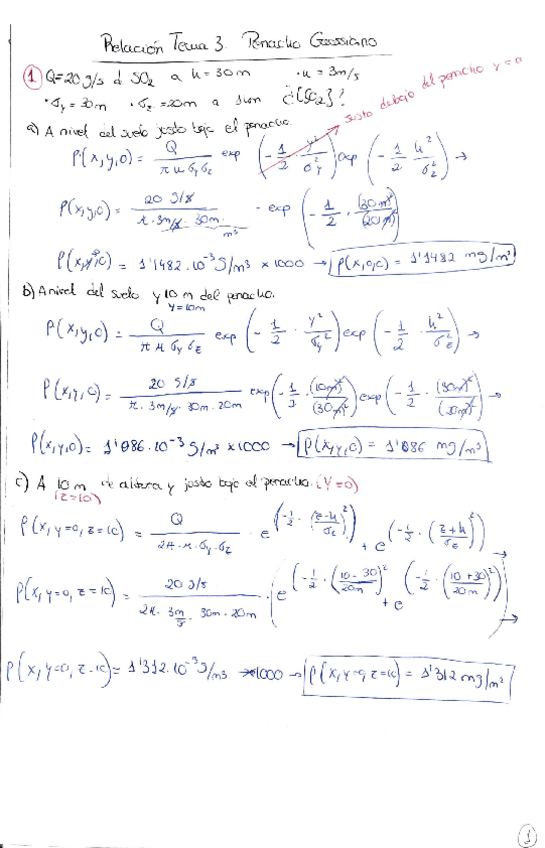 Relación Tema 3. Penacho Gaussiano
① Q=20 g/s d SO₂ a h=30m · u = 3m/s
· σy = 30m · σz = 20m a 1km ¿[SO₂]?
justo debajo del penacho y=0
a) A nivel del suelo justo bajo el penacho.
ρ(x,y,0) = Q / (π u σy σz) exp (-1/2 · y²/σy²) exp (-1/2 · h²/σz²) →
ρ(x,y,0) = 20 g/s / (π · 3m/s · 30m · 20m) m³ · exp (-1/2 · (30m)²/(20m)²)
ρ(x,y,0) = 1'1482·10⁻³ g/m³ × 1000 → ρ(x,0,0) = 1'1482 mg/m³
b) A nivel del suelo y 10 m del penacho.
y=10m
ρ(x,y,0) = Q / (π u σy σz) exp (-1/2 · y²/σy²) exp (-1/2 · h²/σz²) →
ρ(x,y,0) = 20 g/s / (π · 3m/s · 30m · 20m) exp (-1/2 · (10m)²/(30m)²) exp (-1/2 · (30m)²/(20m)²) →
ρ(x,y,0) = 1'086·10⁻³ g/m³ × 1000 → ρ(x,y,0) = 1'086 mg/m³
c) A 10 m de altura y justo bajo el penacho. (y=0)
(z=10)
ρ(x, y=0, z=10) = Q / (2π · u · σy · σz) · e^(-1/2 · ((z-h)/σz)²) + e^(-1/2 · ((z+h)/σz)²) →
ρ(x, y=0, z=10) = 20 g/s / (2π · 3m/s · 30m · 20m) · (e^(-1/2 · ((10-30)/20m)²) + e^(-1/2 · ((10+30)/20m)²)) →
ρ(x, y=0, z=10) = 1'312·10⁻³ g/m³ → ×1000 → ρ(x, y=0, z=10) = 1'312 mg/m³
1